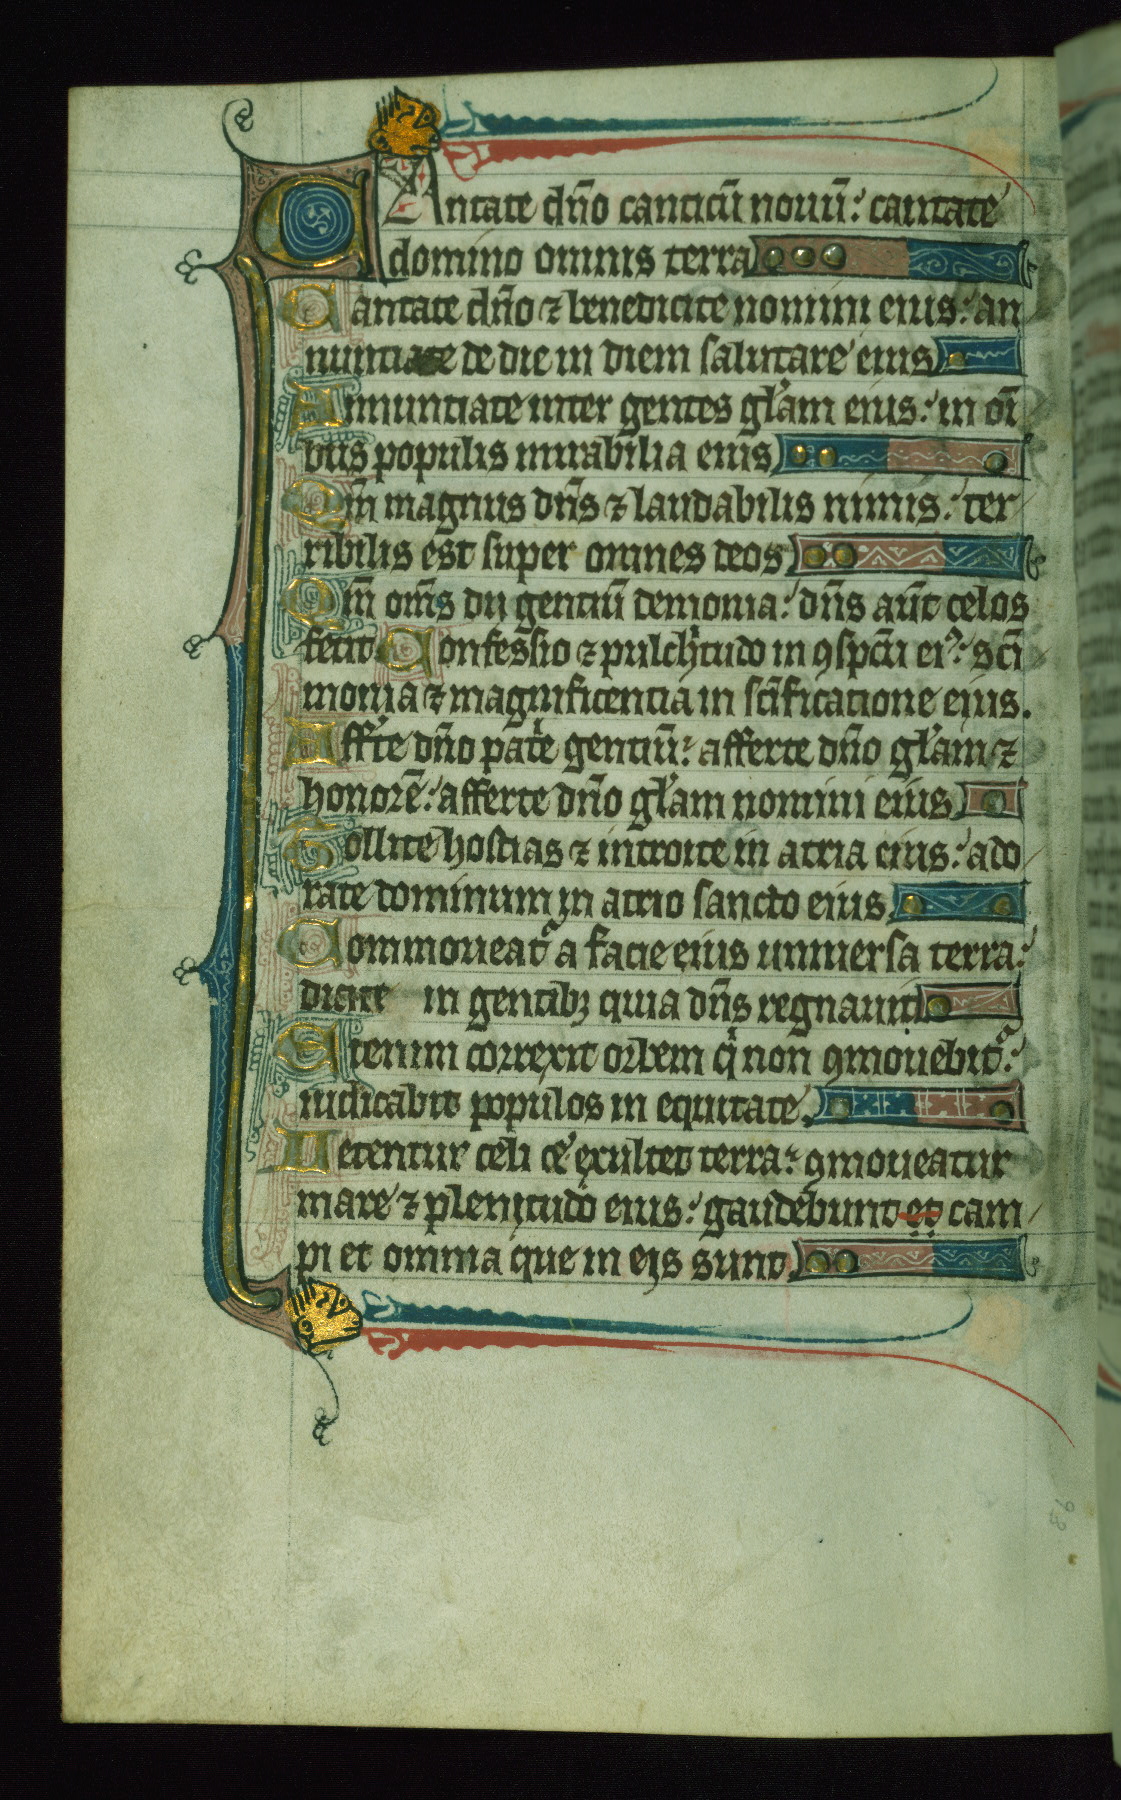 CAntate dn̄o canticū nouū: cantate
domino omnis terra
Cantate dn̄o ⁊ benedicite nomini eius: an
nunciate de die in diem salutare eius
Annunciate inter gentes gl'am eius: in oī
bus populis mirabilia eius
Qm̄ magnus dn̄s ⁊ laudabilis nimis: ter
ribilis est super omnes deos
Qm̄ om̄s dii gentiū demonia: dn̄s aūt celos
fecit Confessio ⁊ pulchͥtudo in ꝯspcū eiꝰ: sc̄i
monia ⁊ magnificentia in sc̄ificatione eius.
Aff'te dn̄o pat'e gentiū: afferte dn̄o gl'am ⁊
honorē: afferte dn̄o gl'am nomini eius
Tollite hostias ⁊ introite in atria eius: ado
rate dominum in atrio sancto eius
Commoueatᷓ a facie eius uniuersa terra:
dicite in gentibꝫ quia dn̄s regnauit
Etenim correxit orbem qͥ non ꝯmouebitᷓ:
iudicabit populos in equitate
Letentur celi ⁊ exultet terra: ꝯmoueatur
mare ⁊ plenitudo eius: gaudebunt et cam
pi et omnia que in eis sunt
93